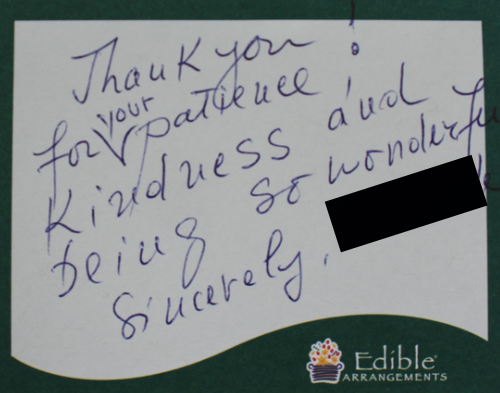 Thank you!
for your patience
kindness and
being so wonderful
Sincerely,
Edible
ARRANGEMENTS